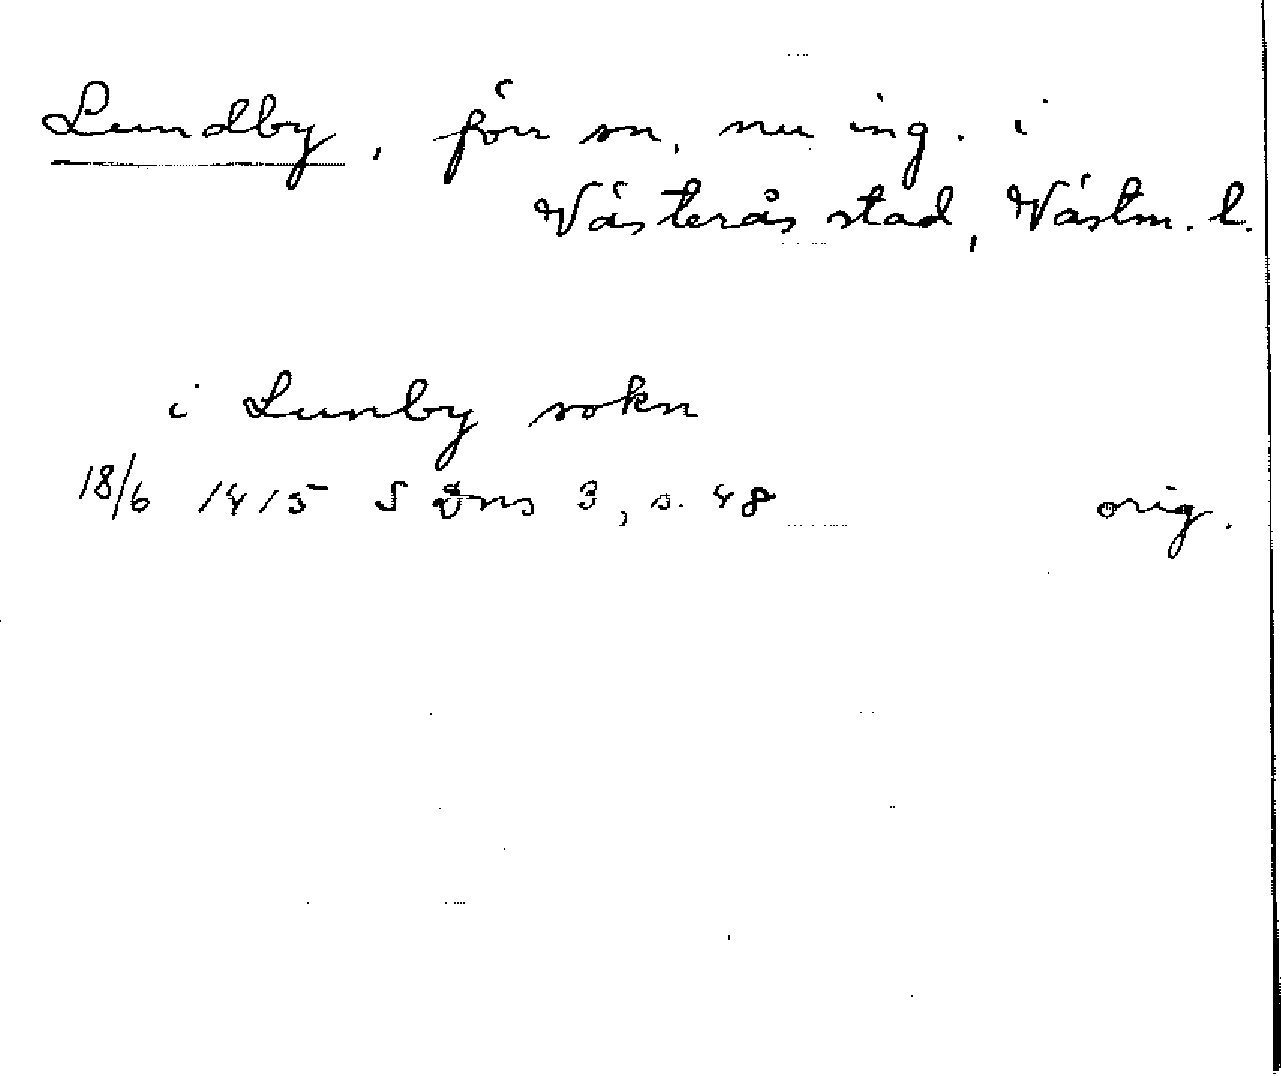 Lundby, förr sn, nu ing. i
Västerås stad, Västm. l.
i Lunby sokn
18/6 1415 SDns 3, s. 48 orig.